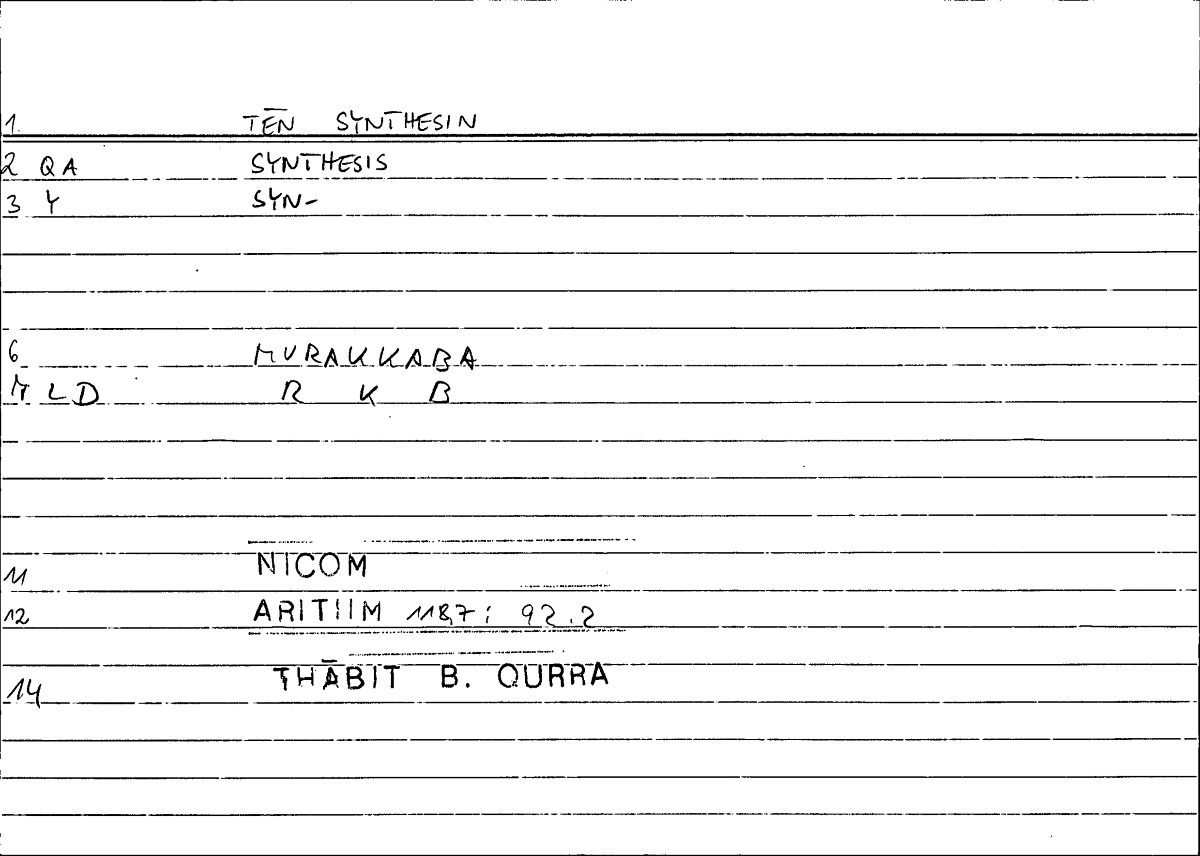 1. TĒN SYNTHESIN
2 QA SYNTHESIS
3 Y SYN-
6 MURAKKABA
M LD R K B
11 NICOM
12 ARITIIM 118,7; 92.2
14 THĀBIT B. QURRA